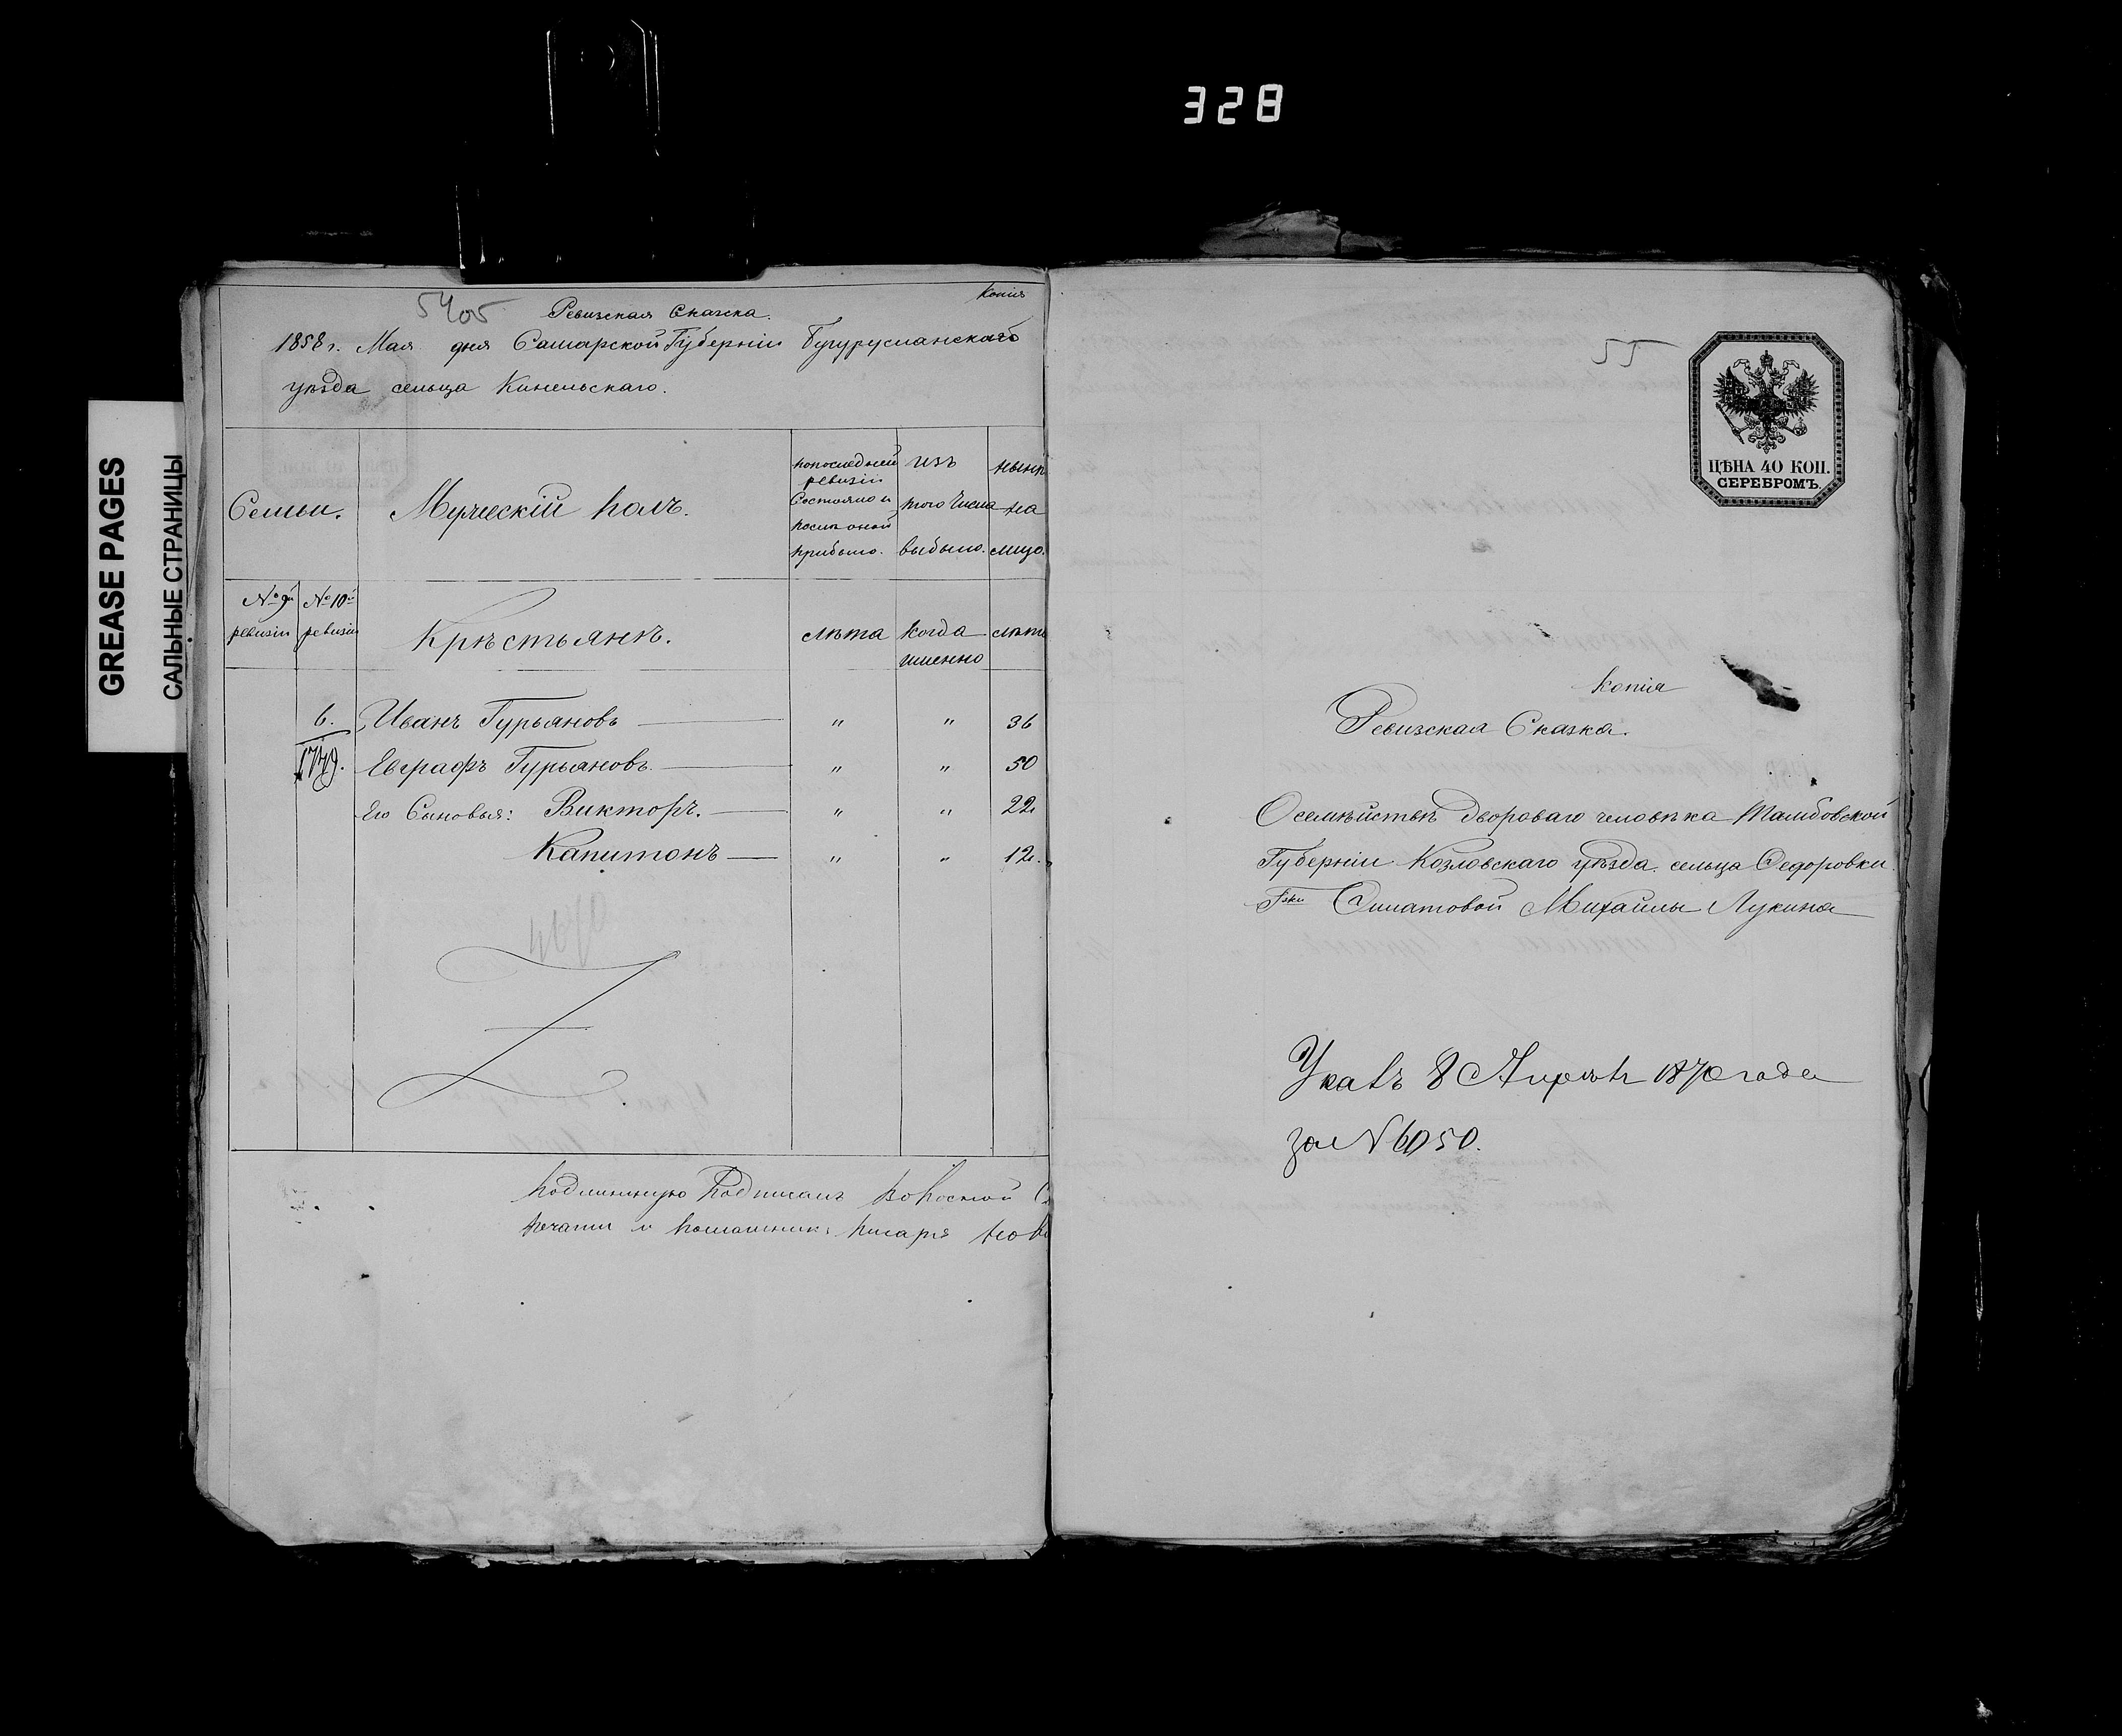 328
GREASE PAGES
САЛЬНЫЕ СТРАНИЦЫ
Копія
5405 Ревизская Сказка.
1858 г. Мая дня Самарской Губерніи Бугурусланскаго
уѣзда сельца Кинельскаго.
Семьи.
Мужескій полъ.
по последней ревизіи Состояло и после оной прибыло.
изъ того числа выбыло.
нынѣ на лицо.
№ 9й ревизіи
№ 10й ревизіи
Крѣстьянѣ.
лѣта
когда именно
лѣта
6. Иванъ Гурьяновъ " " 36
Евграфъ Гурьяновъ. " " 50
Его Сыновья: Викторъ. " " 22
Капитонъ " " 12.
Подлинную Подписалъ
печати и помощникъ писаря
55
ЦѢНА 40 КОП.
СЕРЕБРОМЪ.
Копія
Ревизская Сказка.
О семѣйствѣ дворового человѣка Тамбовской
Губерніи Козловскаго уѣзда сельца Федоровки
Гжи Михайлы Лукина
Указъ 8 Апрѣля 1870 года
за N 6050.